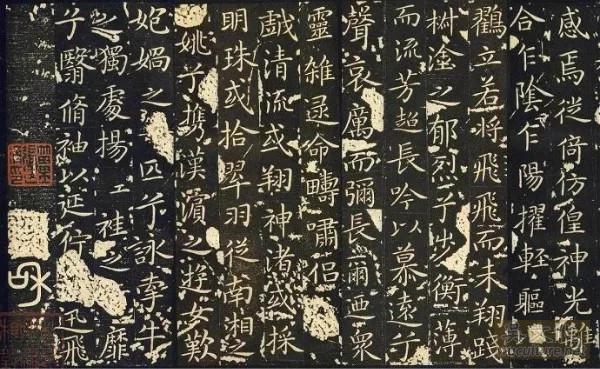 感焉徙倚仿偟神光離
合乍陰乍陽擢輕軀
鶴立若將飛飛而未翔踐
椒塗之郁烈兮步衡薄
而流芳超長吟以慕遠兮
聲哀厲而彌長爾迺衆
靈雜遝命疇嘯侶
戲清流或翔神渚或採
明珠或拾翠羽從南湘之
姚兮攜漢濱之遊女歎
媧之匹兮詠牽牛
之獨處揚袿之靡
兮翳脩袖以延佇迅飛